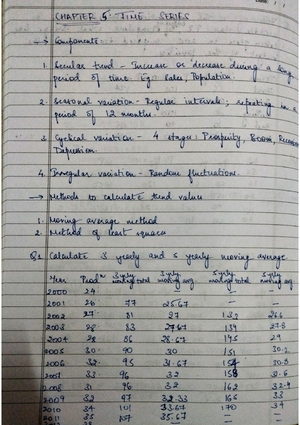 CHAPTER 5 TIME SERIES
→ Components
1. Secular trend - Increase or decrease during a long
period of time. Eg: Sales, Population.
2. Seasonal variation - Regular intervals; repeating in a
period of 12 months.
3. Cyclical variation - 4 stages: Prosperity, Boom,
Depression.
4. Irregular variation - Random fluctuations.
→ Methods to calculate trend values
1. Moving average method
2. Method of least squares
Q1 Calculate 3 yearly and 5 yearly moving average
Year Prodn 3 yrly moving total 3 yrly moving avg 5 yrly moving total 5 yrly moving avg
2000 24
2001 26 77 25.67 — —
2002 27 81 27 133 26.6
2003 28 83 27.67 139 27.8
2004 28 86 28.67 145 29
2005 30 90 30 151 30.2
2006 32 95 31.67 154
2007 33 96 32 158 31.6
2008 31 96 32 162 32.4
2009 32 97 32.33 165 33
2010 34 101 33.67 170 34
2011 35 107 35.67 —